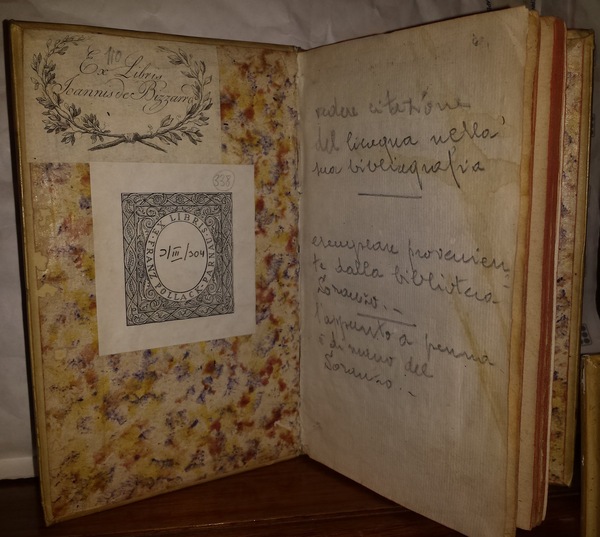 110
Ex Libris
Joannis de Bizzarro
338
EX LIBRIS PARNARUM FRANZ POLLACK
D/III/304
6.
vedere citazione
del Cicogna nella
sua bibliografia
esemplare provenien-
te dalla biblioteca
Soranzo. –
l'appunto a penna
è di mano del
Soranzo. –